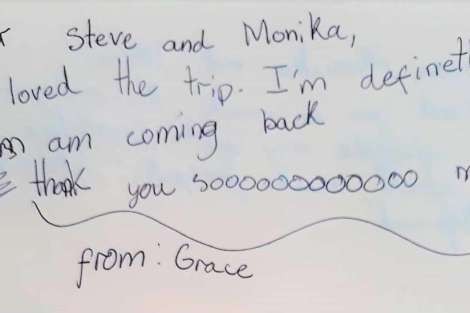 Steve and Monika,
loved the trip. I'm defineti
am coming back
thank you sooooooooooooo m
from: Grace